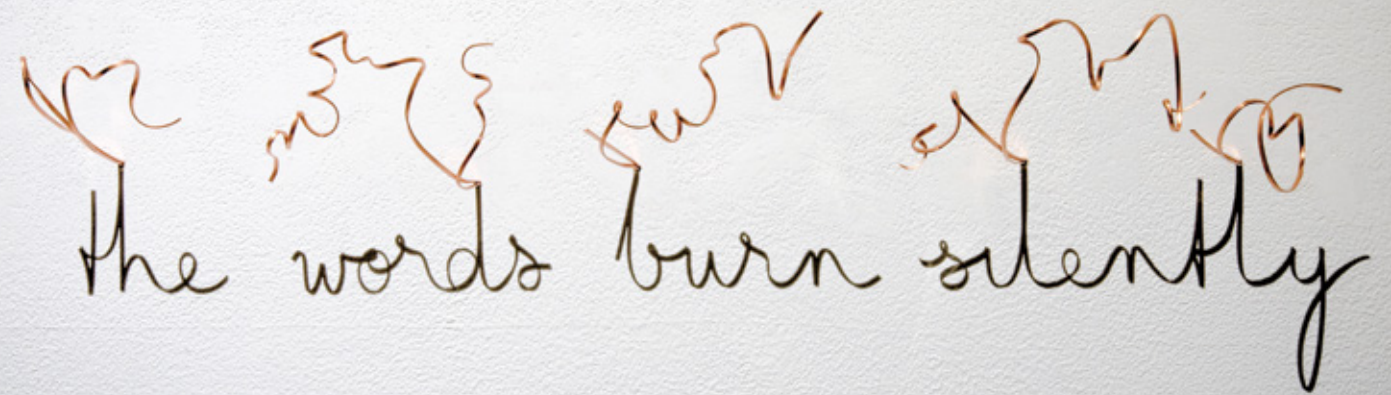 the words burn silently